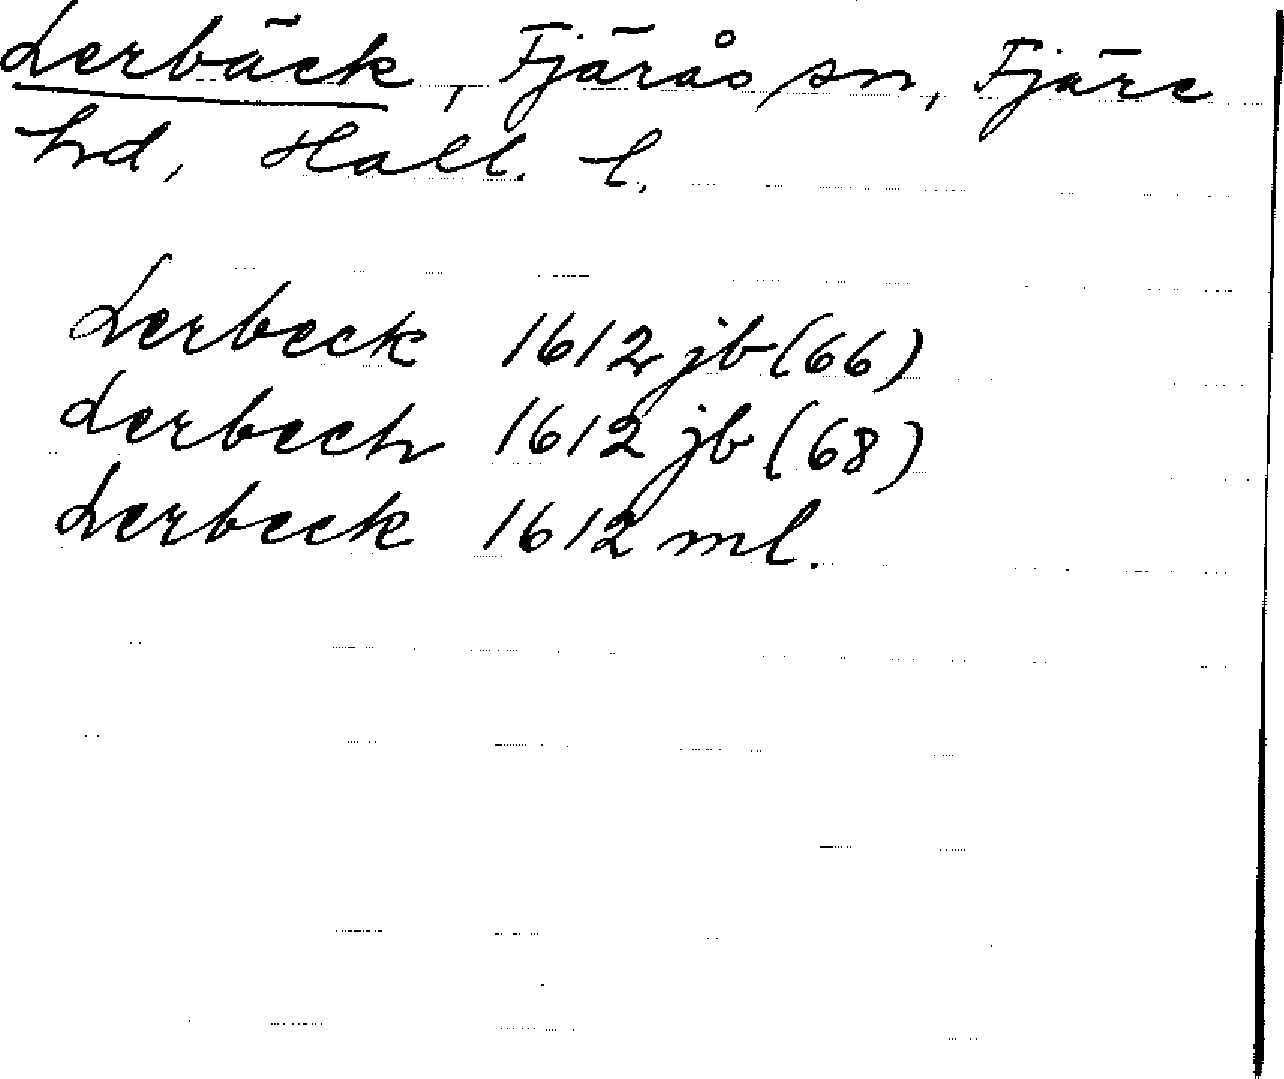 Lerbäck, Fjärås sn, Fjäre
hd, Hall. l.
Lerbeck 1612 jb (66)
Lerbech 1612 jb (68)
Lerbeck 1612 ml.